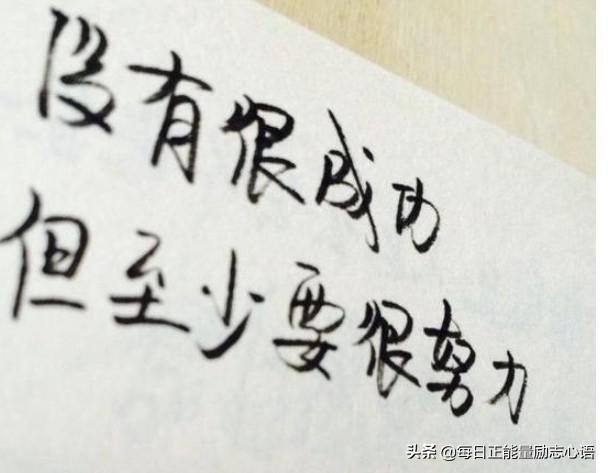 没有很成功
但至少要很努力
头条 @每日正能量励志心语